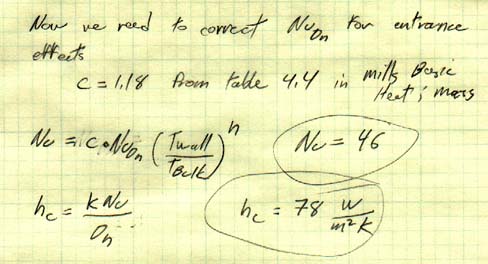 Now we need to correct Nu_Dh for entrance
effects
C = 1.18 from table 4.4 in Mills Basic
Heat & Mass
Nu = C • Nu_Dh (T_wall / T_Bulk)^n
Nu = 46
h_c = k Nu / D_h
h_c = 78 W / m²K